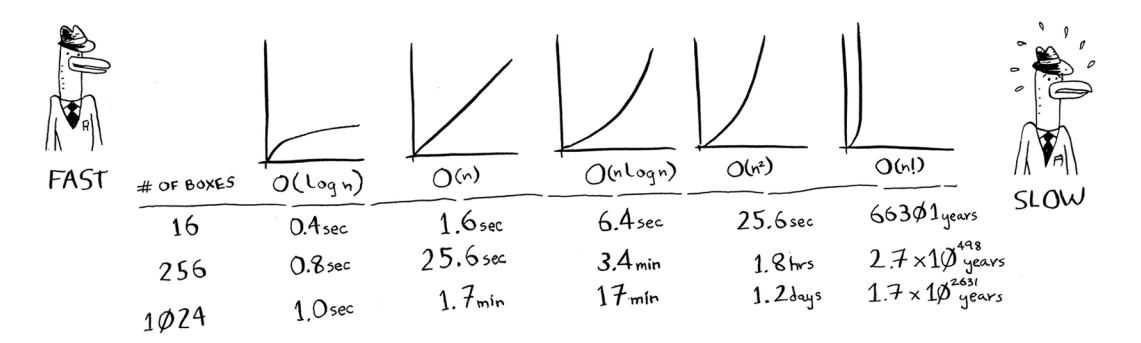 FAST
# OF BOXES O(log n) O(n) O(n log n) O(n²) O(n!)
SLOW
16 0.4sec 1.6sec 6.4sec 25.6sec 66301years
256 0.8sec 25.6sec 3.4min 1.8hrs 2.7x10⁴⁹⁸years
1024 1.0sec 1.7min 17min 1.2days 1.7x10²⁶³¹years